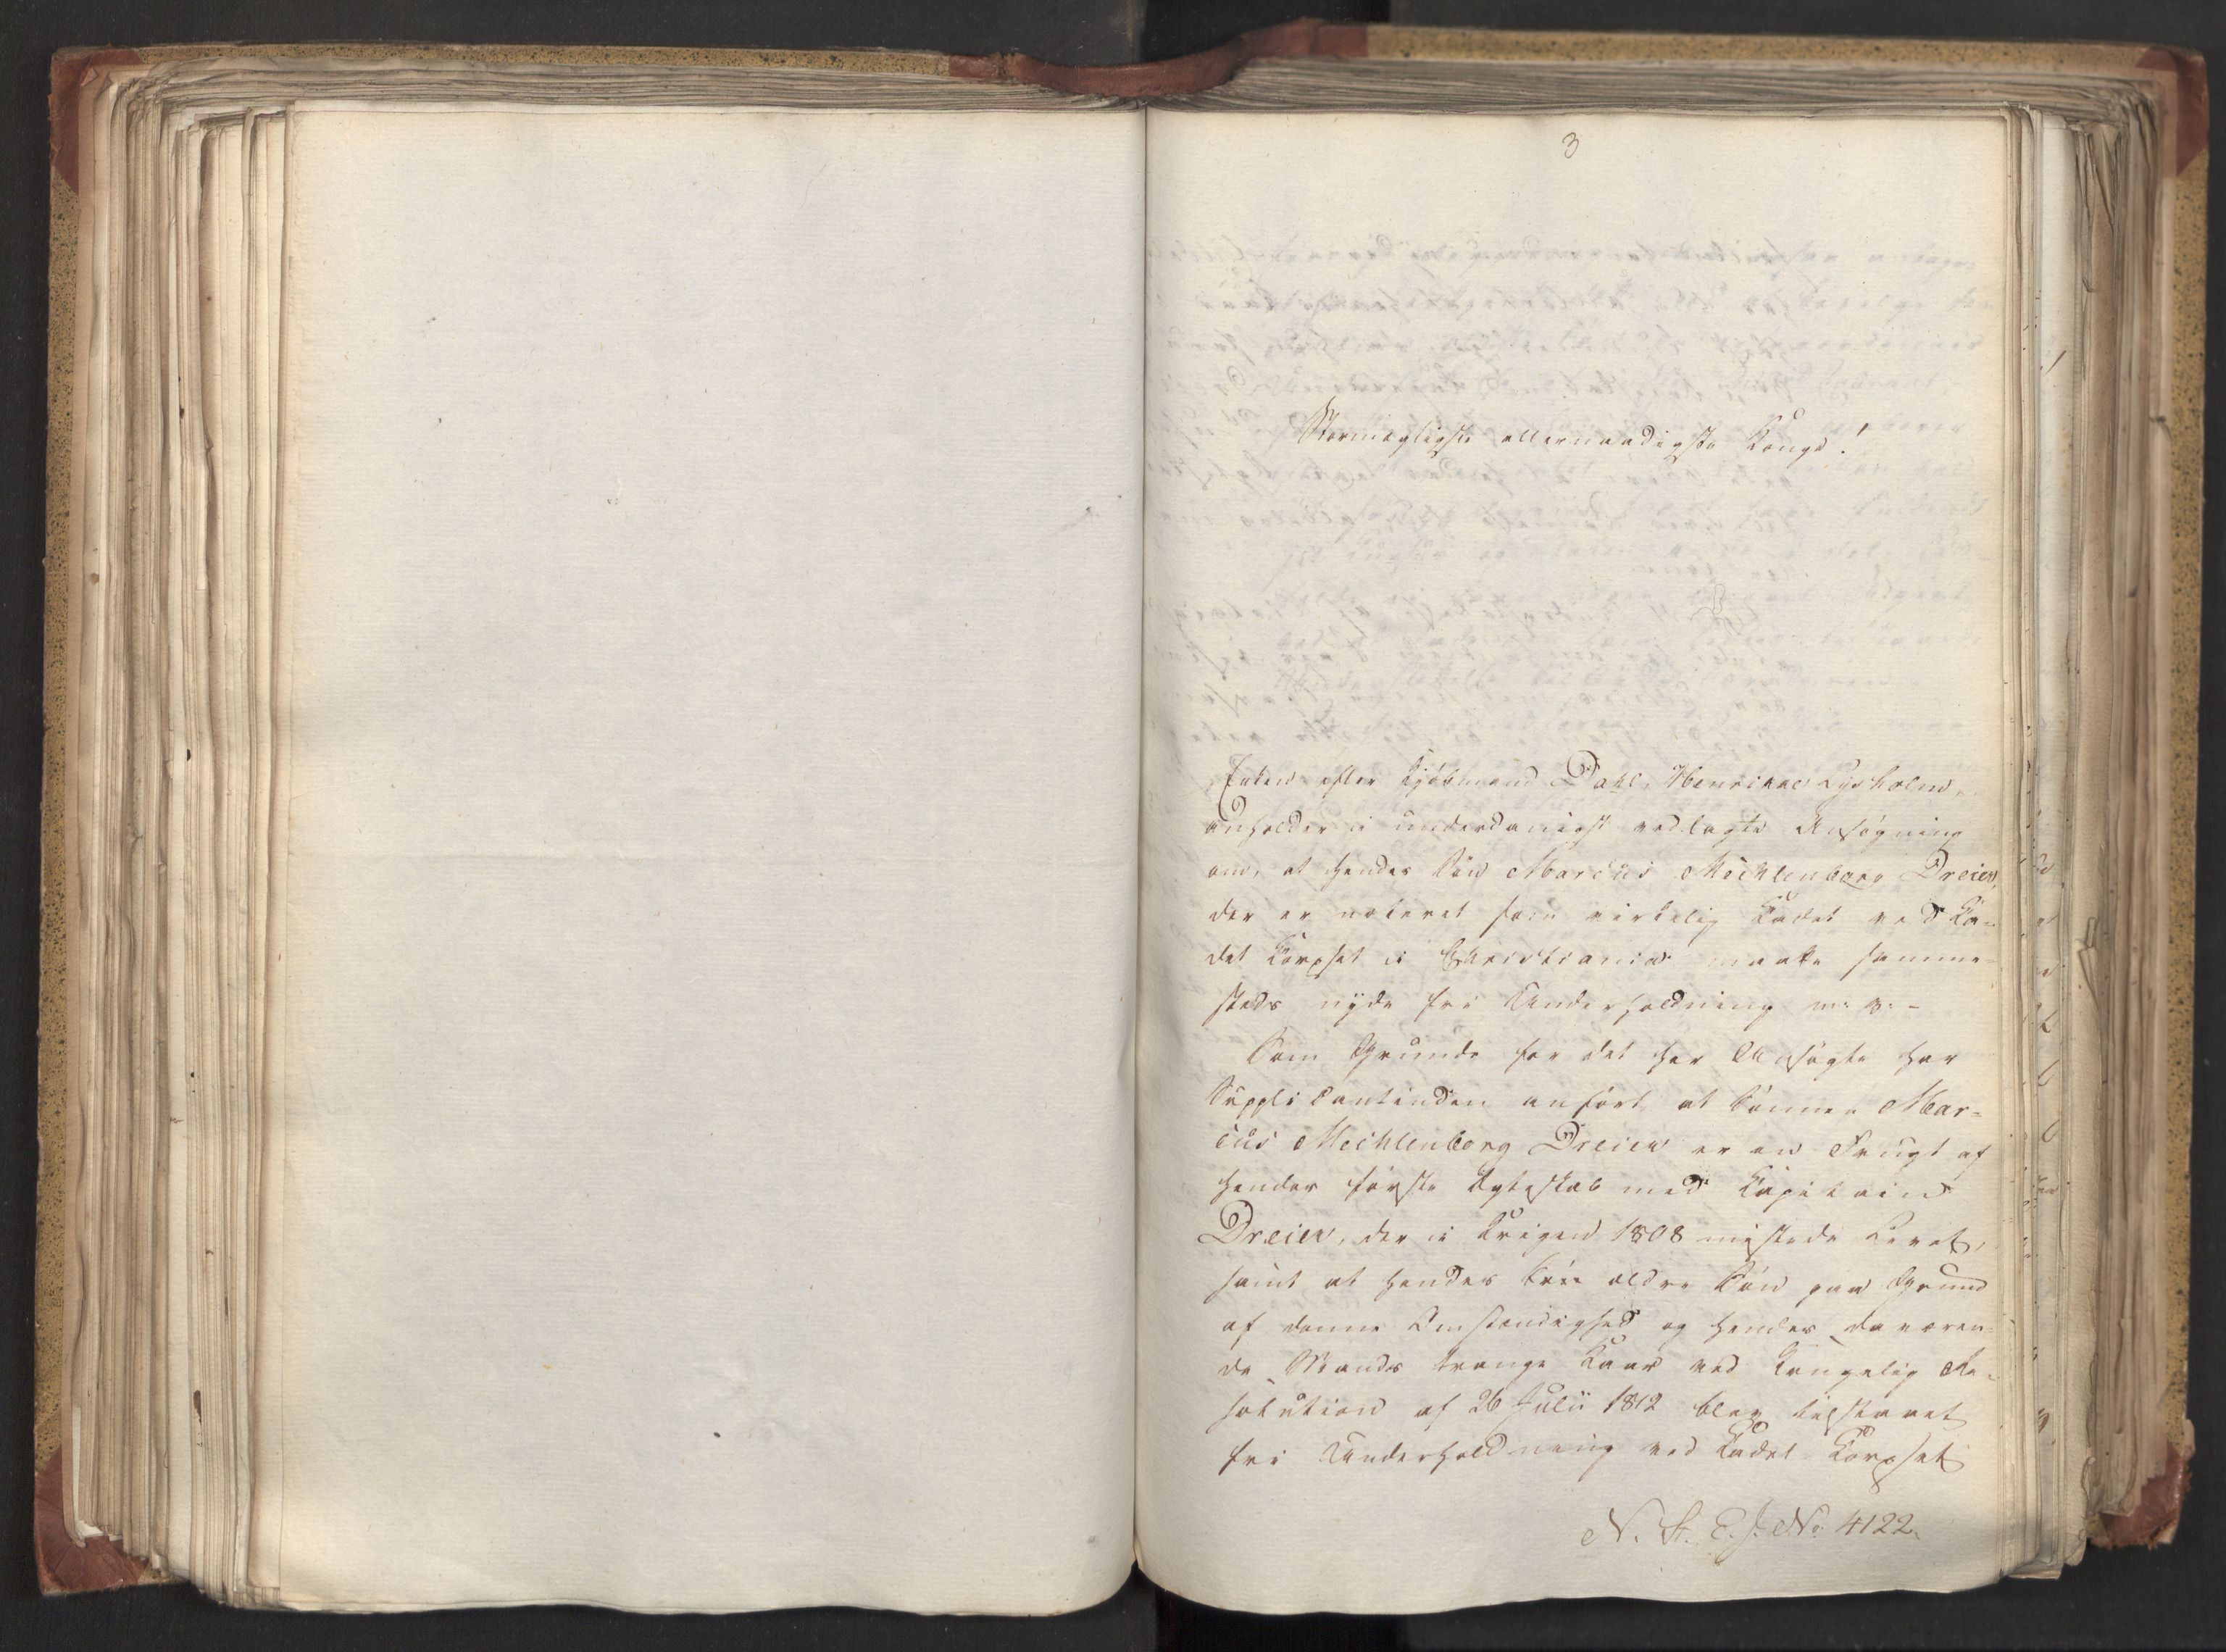 3
Stormægtigste allernaadigste Konge!
Enken efter Kjøbmand Dahl, Henrikke Lysholm,
anholder i underdanigst vedlagte Ansøgning
om, at hendes Søn Marcus Mechlenborg Dreier,
der er noteret som virkelig Kadet ved Ka-
det Korpset i Christiania maatte samme-
steds nyde fri Underholdning m: v: -
Som Grunde for det her Ansøgte har
Supplicantinden anført, at Sønnen Mar-
cus Mechlenborg Dreier er en Frugt af
hendes første Ægteskab med Kapitain
Dreier, der i Krigen 1808 mistede Livet,
samt at hendes ældre Søn paa Grund
af denne Omstændighed og hendes daværen-
de Mands trange Kaar ved Kongelig Re-
solution af 26 Julii 1812 blev tilstaaet
fri Underholdning ved Kadet Korpset
N. St. E. J. No 4122.